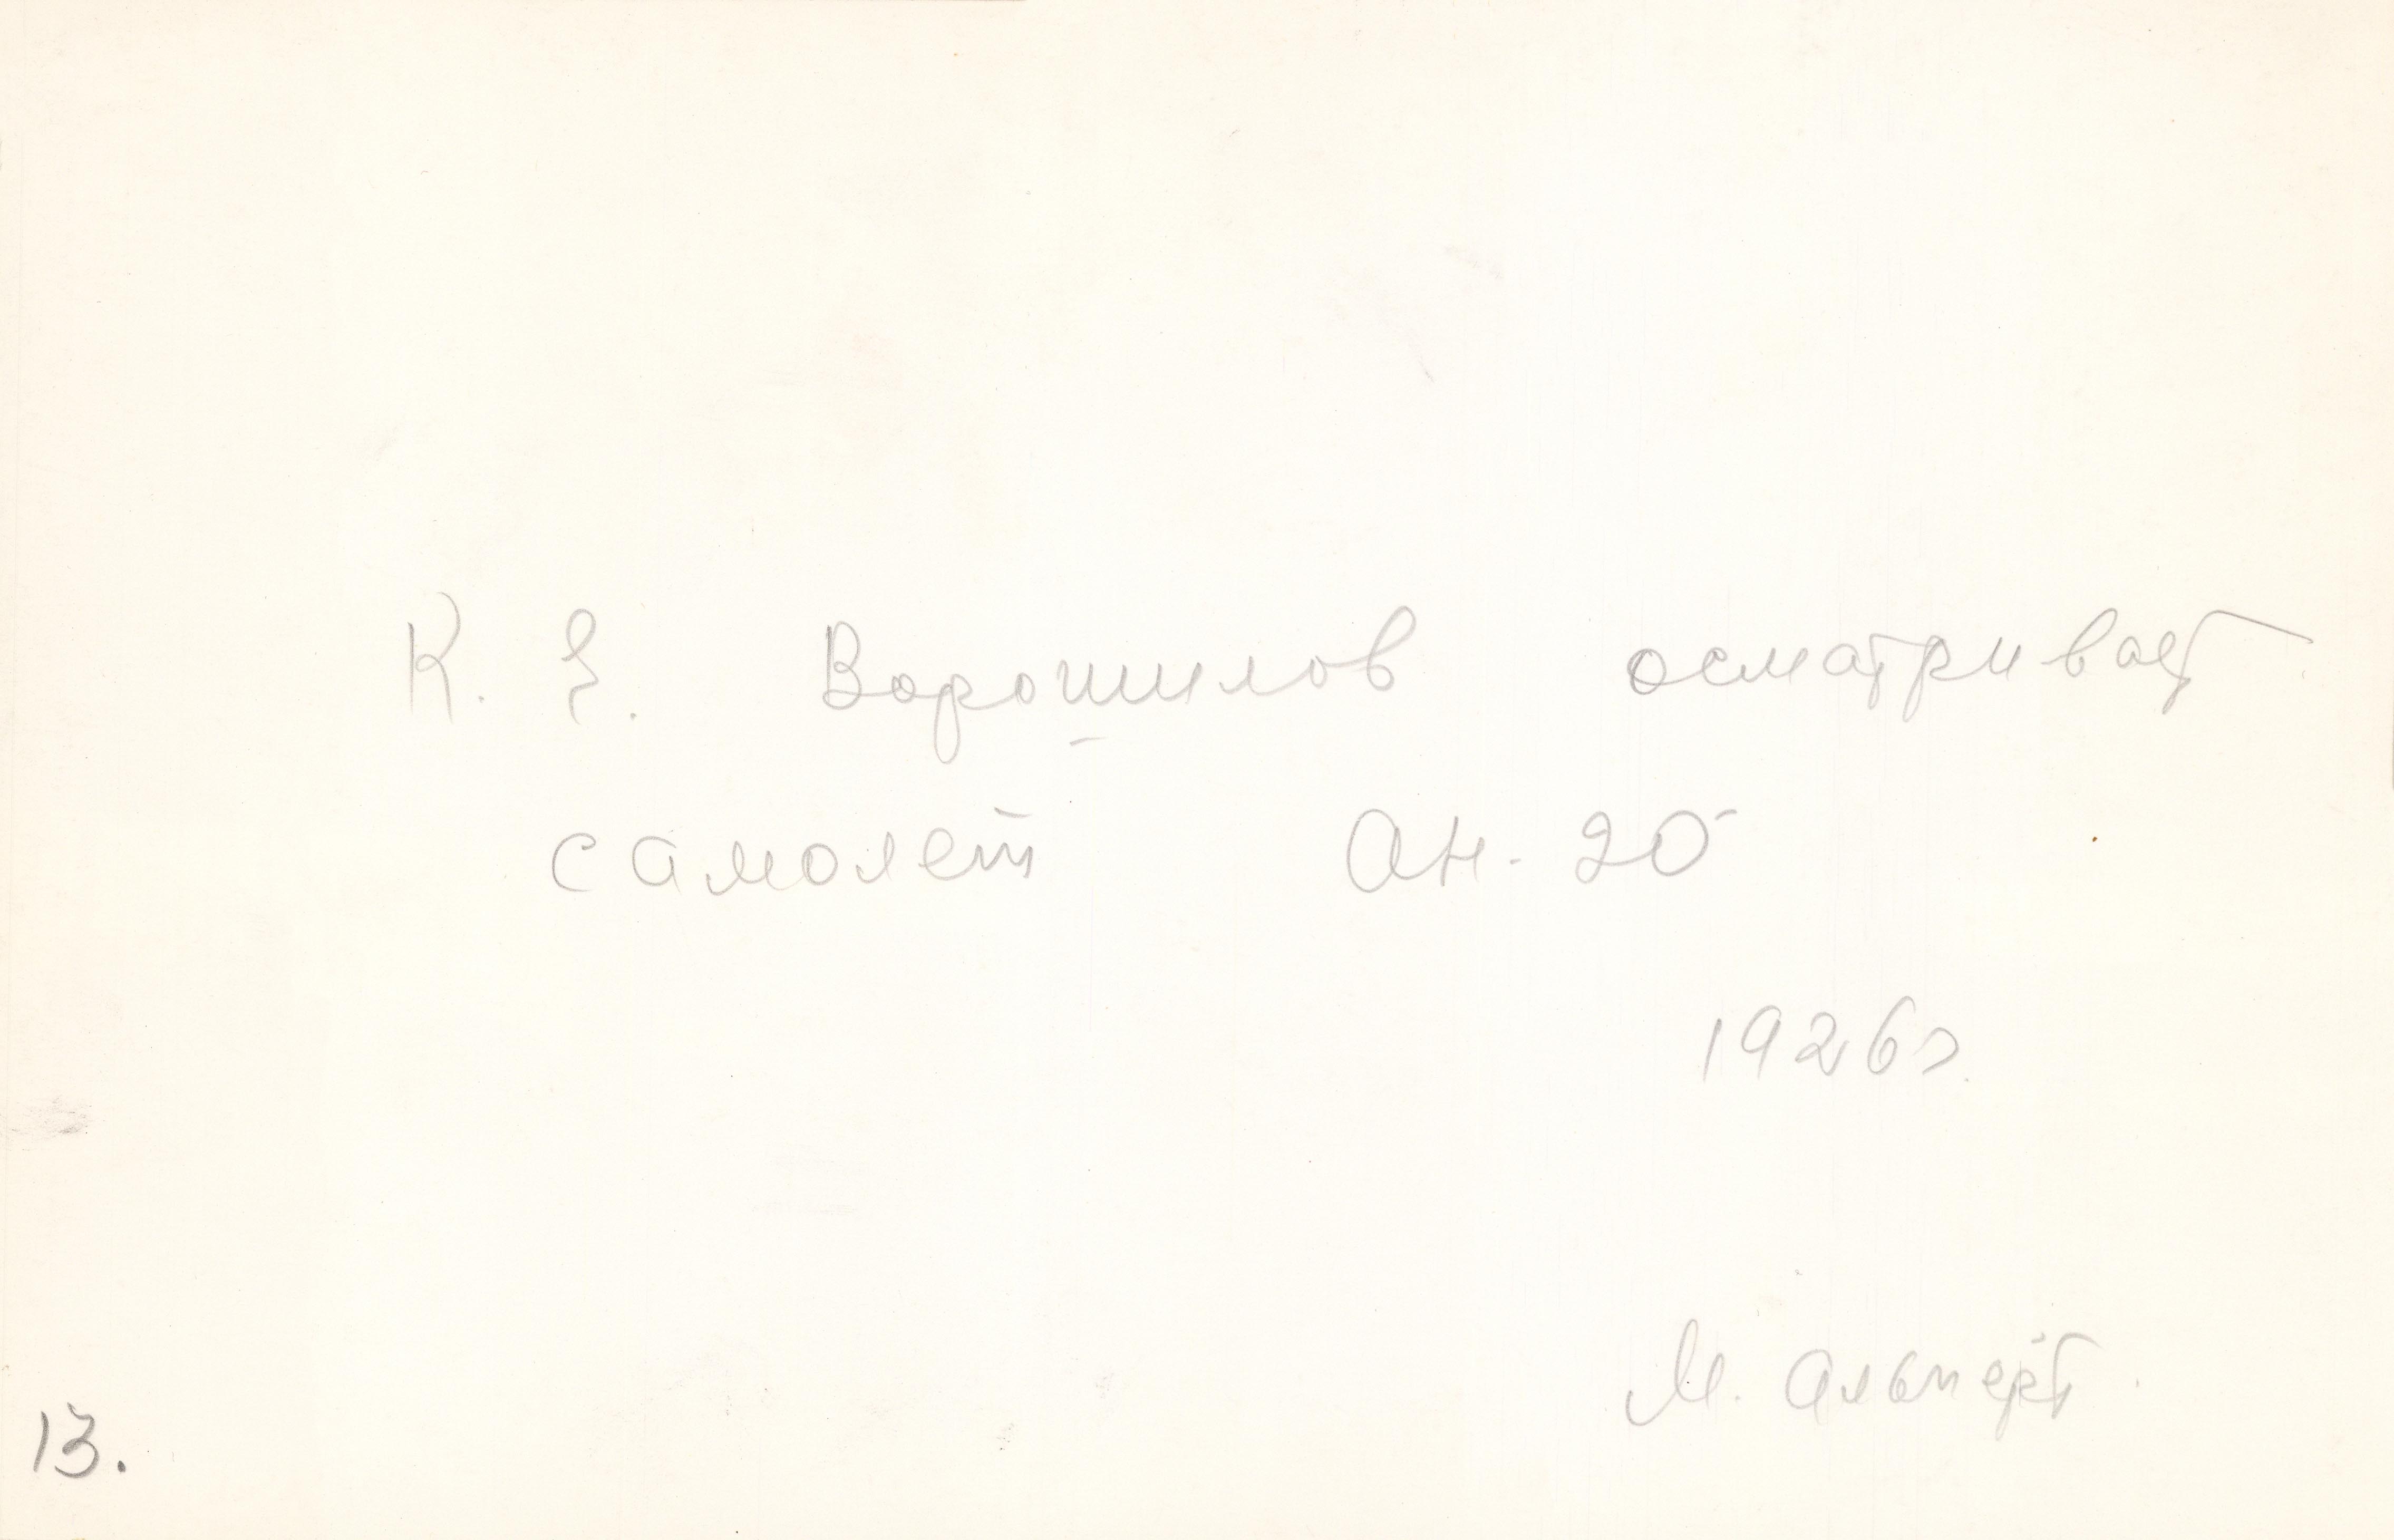 К. Е. Ворошилов осматривает
самолет Ан-20
1926 г.
М. Альперт.
13.